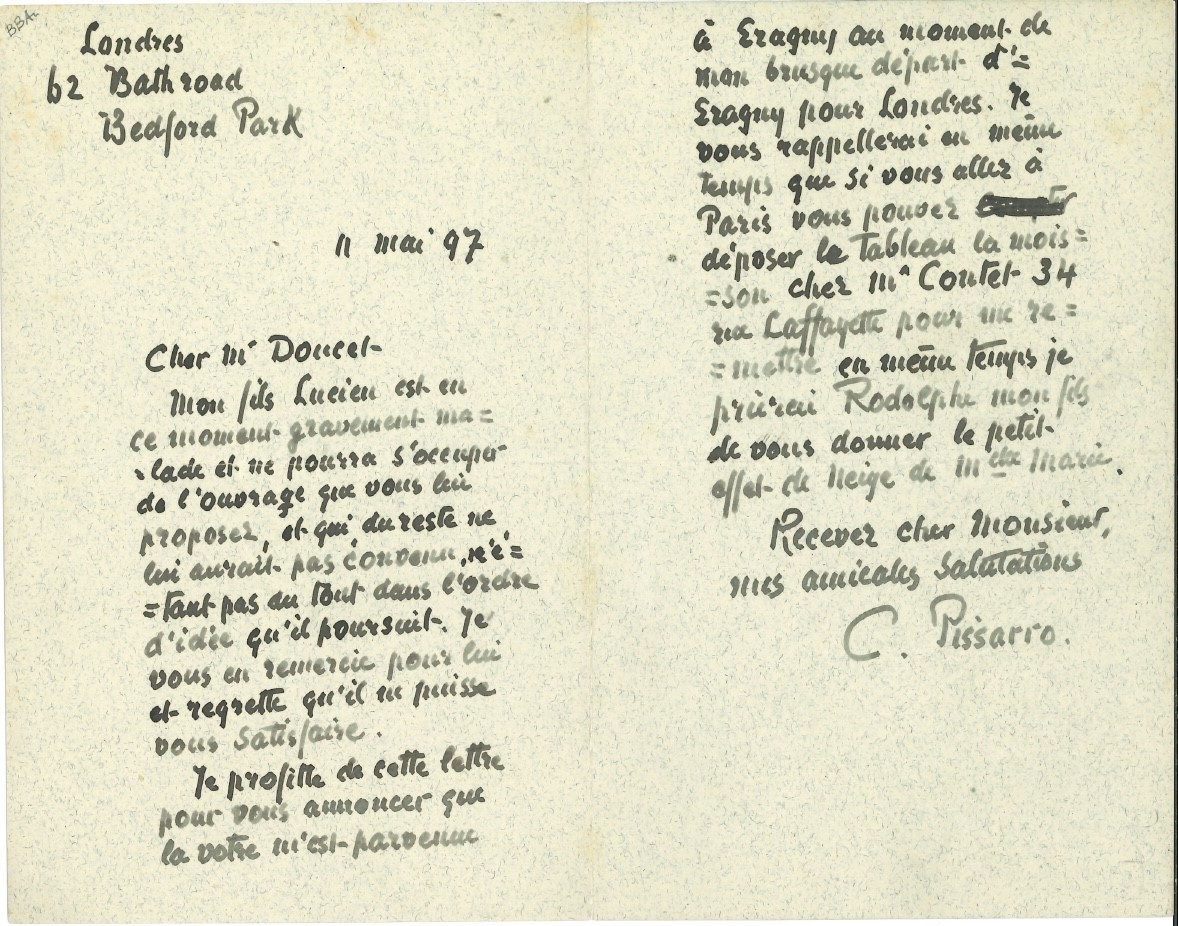 BBA.
Londres
62 Bath road
Bedford Park
11 mai 97
Cher Mr Doucet
Mon fils Lucien est en
ce moment gravement ma=
=lade et ne pourra s'occuper
de l'ouvrage que vous lui
proposez, et qui du reste ne
lui aurait pas convenu, n'é=
=tant pas du tout dans l'ordre
d'idée qu'il poursuit. Je
vous en remercie pour lui
et regrette qu'il ne puisse
vous satisfaire.
Je profitte de cette lettre
pour vous annoncer que
la votre m'est parvenue
à Eragny au moment de
mon brusque départ d'=
Eragny pour Londres. Je
vous rappellerai en même
temps que si vous allez à
Paris vous pouvez
déposer le tableau la mois=
=son chez Mr Contet 34
rue Laffayette pour me re=
=mettre en même temps je
prierai Rodolphe mon fils
de vous donner le petit
effet de Neige de Mlle Marie.
Recevez cher Monsieur,
mes amicales Salutations
C. Pissarro.